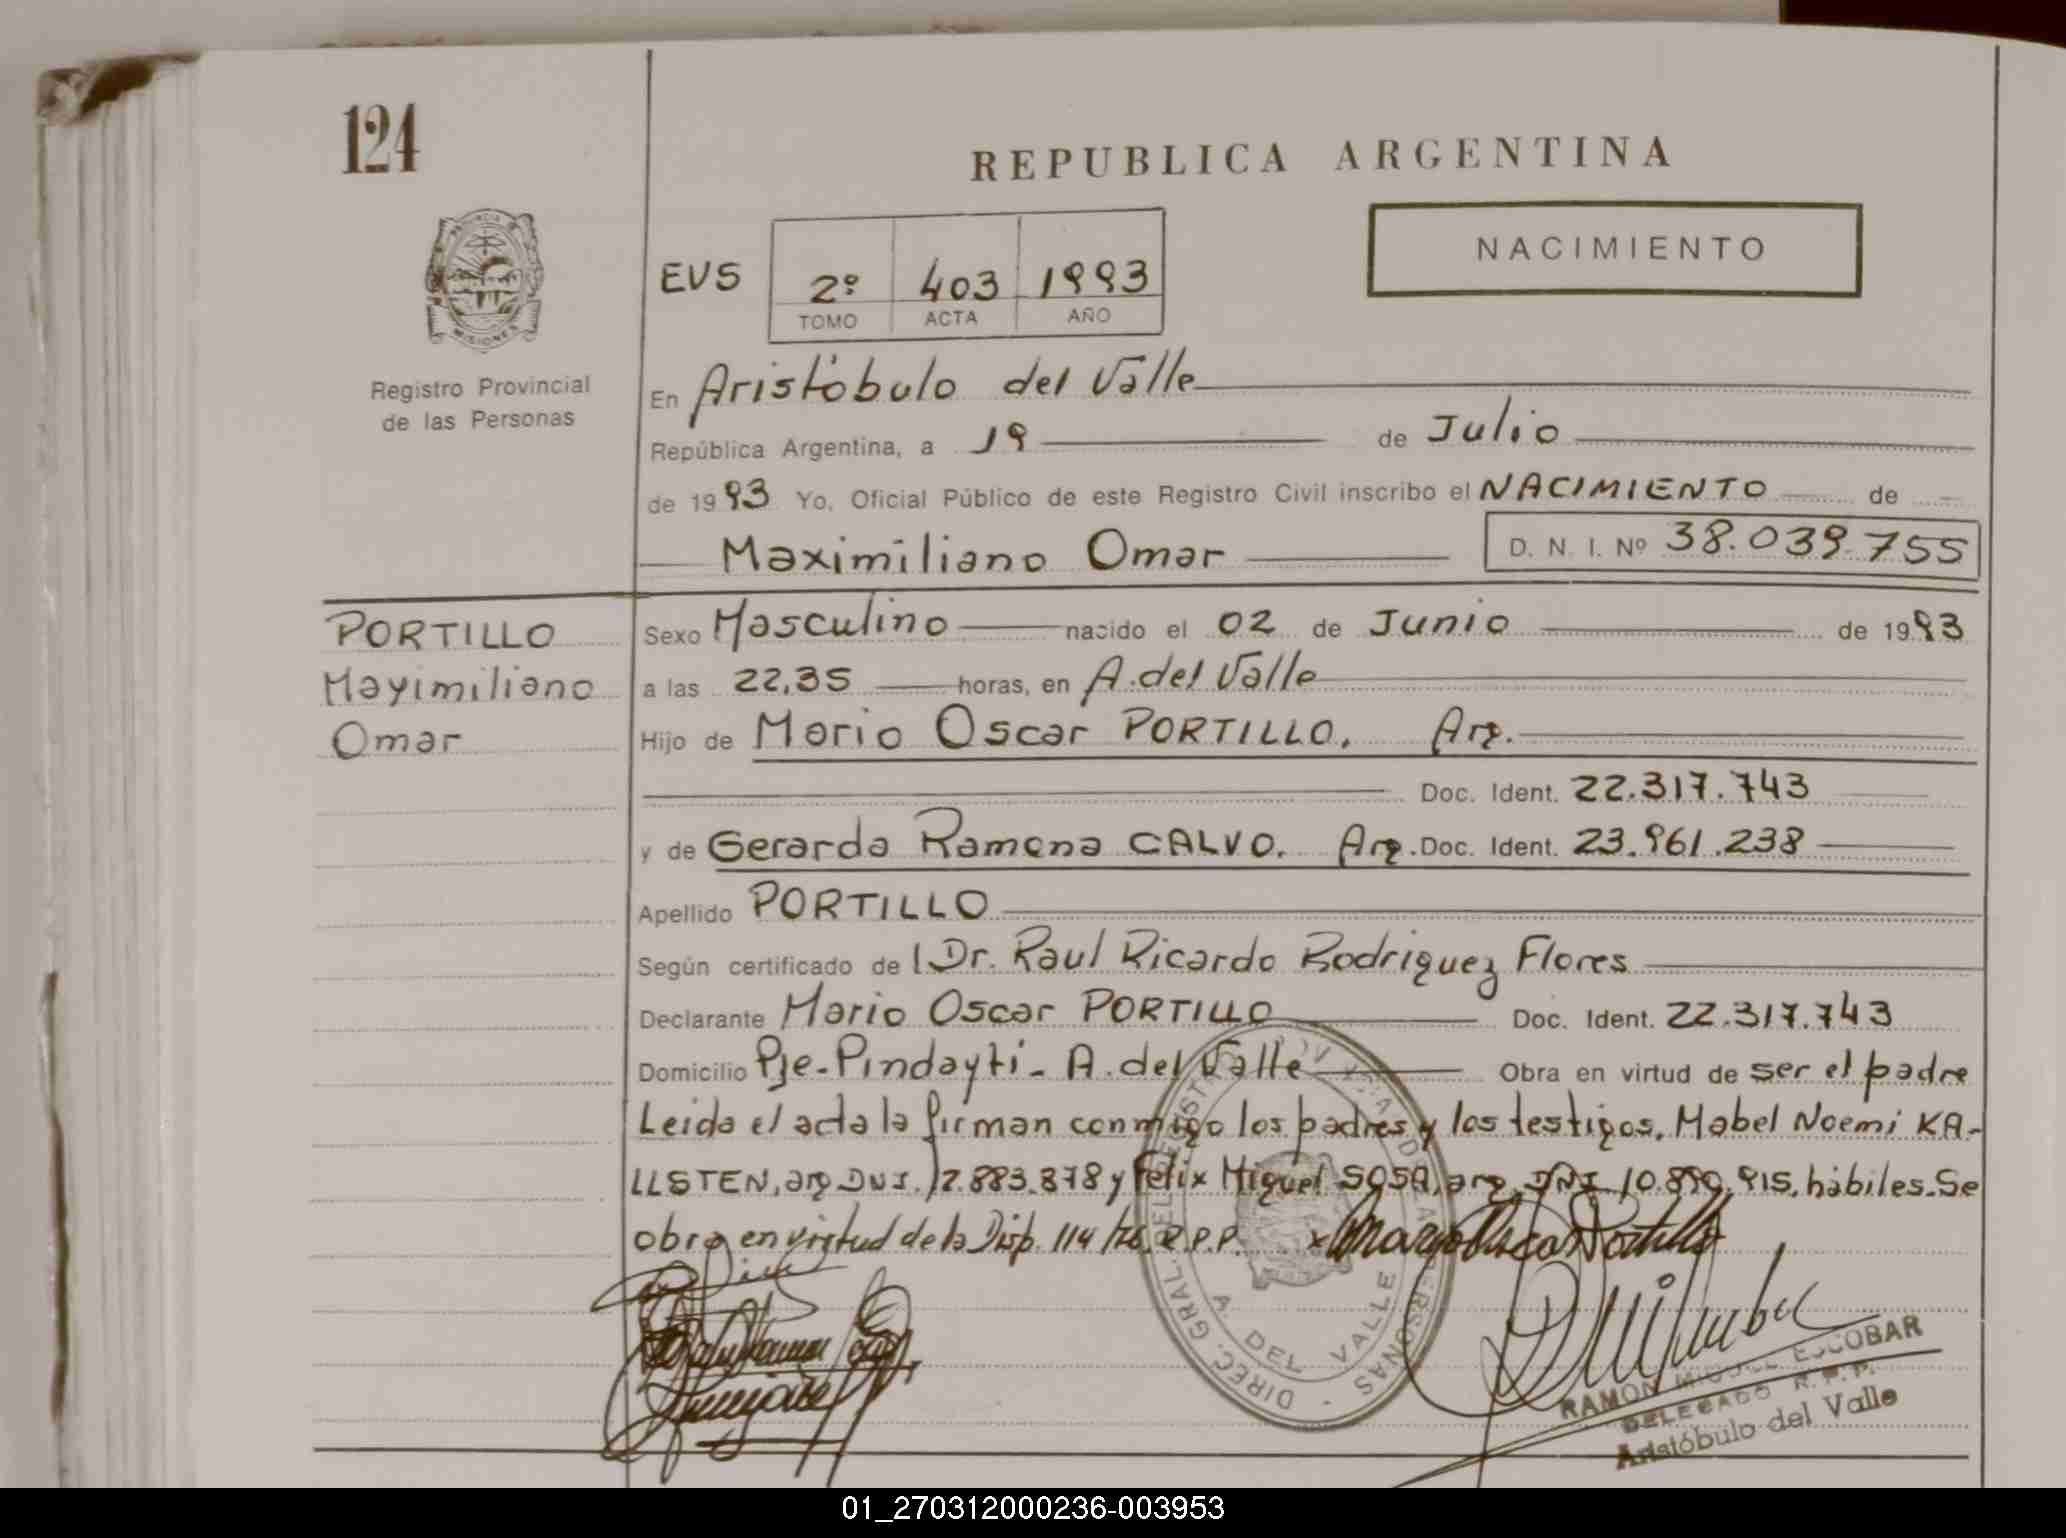 124
REPUBLICA ARGENTINA
NACIMIENTO
PROVINCIA DE MISIONES
Registro Provincial
de las Personas
EVS 2º 403 1993
TOMO ACTA AÑO
En Aristóbulo del Valle
República Argentina, a 19 de Julio
de 1993 Yo, Oficial Público de este Registro Civil inscribo el NACIMIENTO de
Maximiliano Omar D. N. I. Nº 38.039.755
PORTILLO
Mayimiliano
Omar
Sexo Masculino nacido el 02 de Junio de 1993
a las 22,35 horas, en A. del Valle
Hijo de Mario Oscar PORTILLO. Arg.
Doc. Ident. 22.317.743
y de Gerarda Ramona CALVO. Arg. Doc. Ident. 23.961.238
Apellido PORTILLO
Según certificado de l Dr. Raul Ricardo Rodriguez Flores
Declarante Mario Oscar PORTILLO Doc. Ident. 22.317.743
Domicilio Pje. Pindayti - A. del Valle Obra en virtud de ser el padre
Leida el acta la firman conmigo los padres y los testigos, Mabel Noemi KA-
LLSTEN, arg DNI. 12.883.878 y Felix Miguel SOSA, arg, DNI 10.890.915, hábiles. Se
obra en virtud de la Disp. 114/76. R.P.P. x Mario Oscar Portillo
DIREC. GRAL. DEL REGISTRO PROV. DE LAS PERSONAS
A. DEL VALLE
RAMON MIGUEL ESCOBAR
DELEGADO R.P.P.
Aristóbulo del Valle
01_270312000236-003953